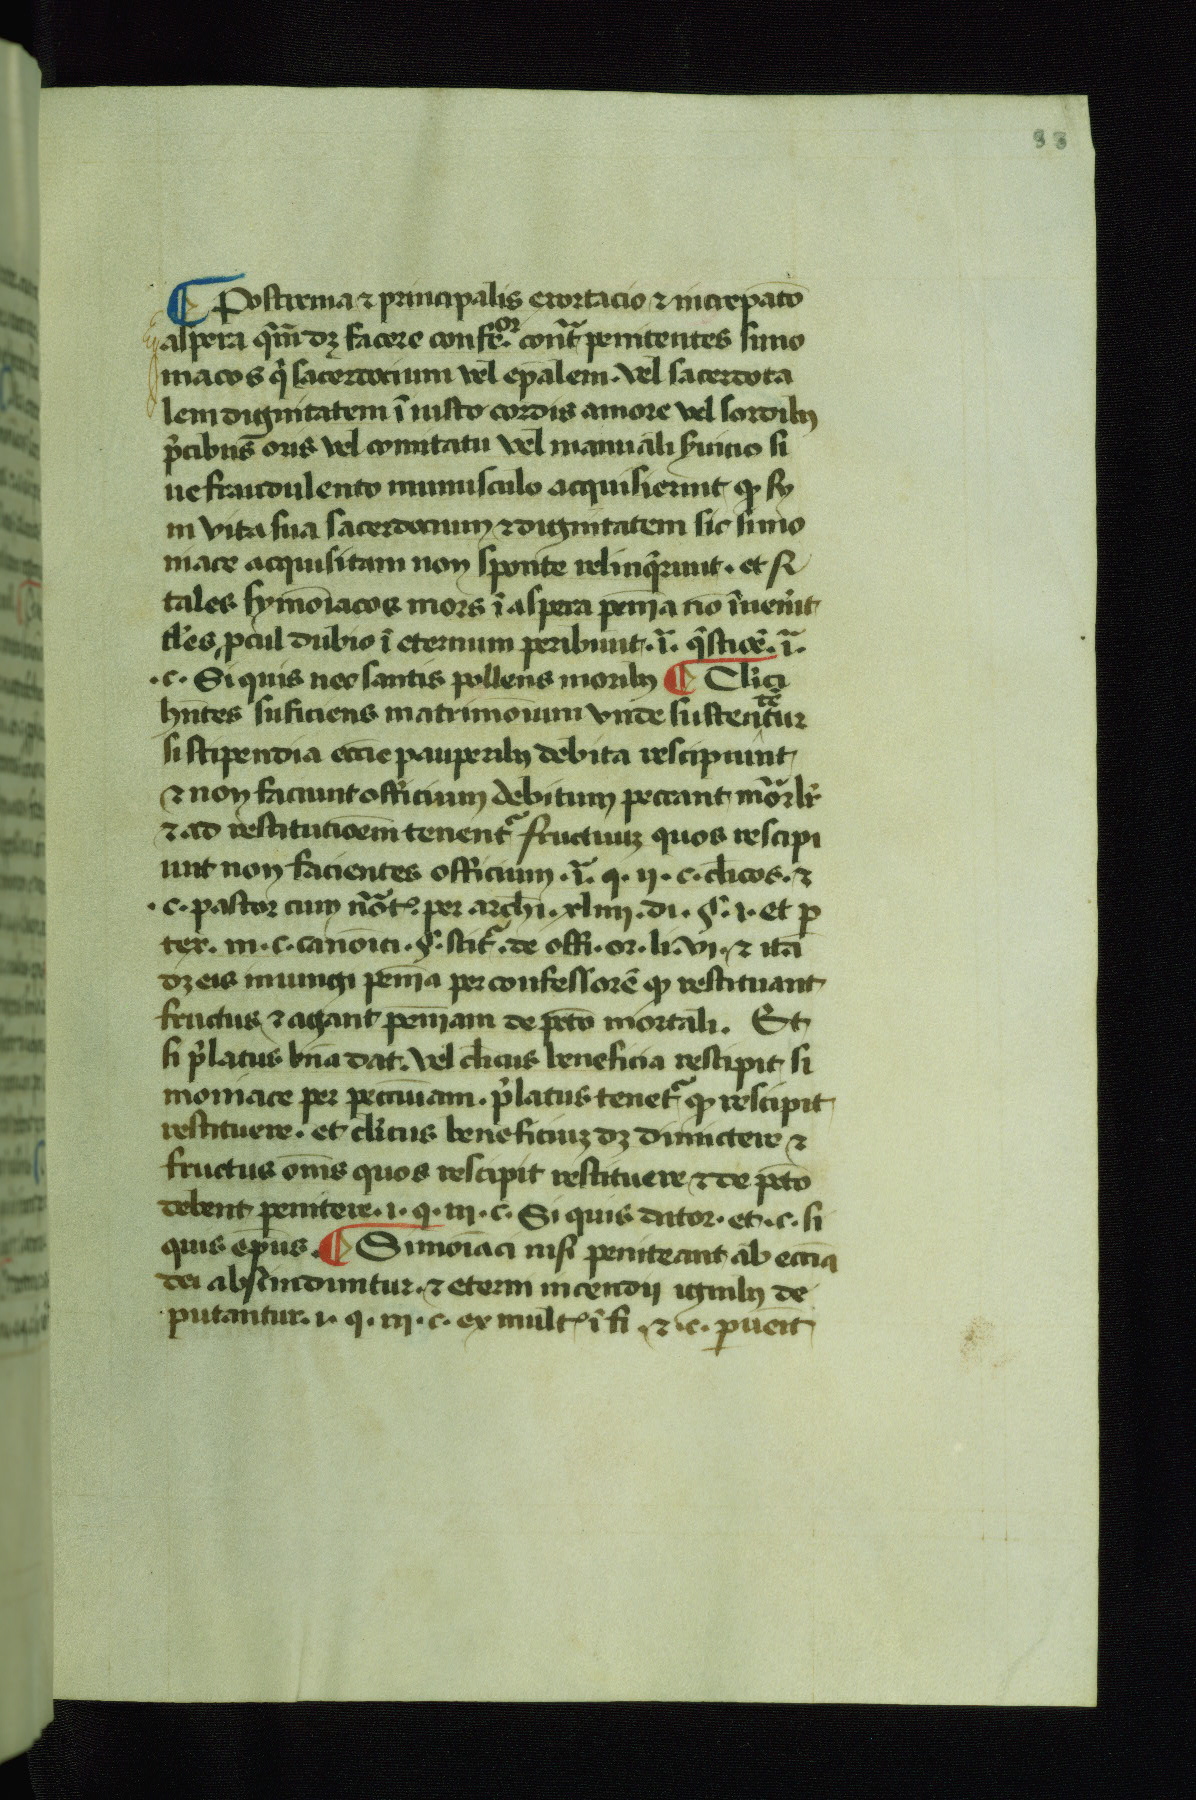 33
¶ Postrema ⁊ principalis exortacio ⁊ increpatō
aspera q̄m̄ dꝫ facere confe.or cont̃ penitentes simo
niacos q̇ sacerdocium vel ep̄alem. vel sacerdota
lem dignitatem ī iusto cordis amore vel sordibꝫ
p̄cibus oris vel comitatu vel manuali ẜuicio si
ue fraudulento munusculo acquisierint ꝙ sy
in vita sua sacerdocium ⁊ dignitatem sic simo
niace acquisitam non sponte relinq̄runt. et si
tales symōiacos mors ī aspera pen̄ia nō īuen̄it
tl̄es ꝓcul dubio ī eternum peribunt. ī. q̄stiōe. ī.
.c. Si quis nec santis pollens moribꝫ ¶ Cl̄ici
hn̄tes suficiens matrimōium vnde sustententur
si stipendia ecc̄ie pauperibꝫ debita rescipiunt
⁊ non faciunt officium debitum peccant mōrlr̄
⁊ ad restitutiōem tenent᷑ fructuuꝫ quos rescipi
unt non facientes officium. ī. q. ii. c. cl̄icos. ⁊
.c. pastor cum nōt. per archi. xliiii. di. §. i. et p
tex. in. c. canōici. §. scit᷑. de offi. or. li. vi. ⁊ itā
dꝫ eis iniungi pen̄ia per confessorē ꝙ restituant
fructus ⁊ agant pen̄iam de pctō mortali. Et
si p̄latus bn̄ia dat. vel cl̄icus beneficia rescipit si
moniace per peccūiam. p̄latus tenet᷑ ꝙ rescipit
restituere. et cl̄icus beneficiuꝫ dꝫ dimictere ⁊
fructus om̄s quos rescipit restituere ⁊ de pctō
debent penitere. i. q. iii. c. Si quis dator. et .c. si
quis ep̄us. ¶ Simōiaci nisi peniteant ab ecc̄ia
dei abscinduntur. ⁊ eterni incendii ignibꝫ de
putantur. i. q. iii. c. ex mult᷑ ī fi. ⁊ .c. ꝑuen̄it